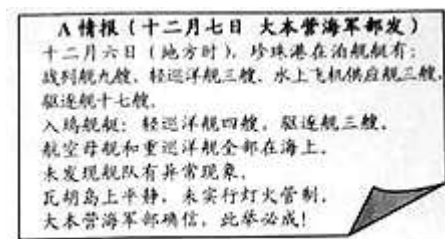 A 情报（十二月七日 大本营海军部发）
十二月六日（地方时），珍珠港在泊舰艇有：
战列舰九艘，轻巡洋舰三艘，水上飞机供应舰三艘，
驱逐舰十七艘，
入坞舰艇：轻巡洋舰四艘，驱逐舰三艘，
航空母舰和重巡洋舰全部在海上，
未发现舰队有异常现象，
瓦胡岛上平静，未实行灯火管制，
大本营海军部确信，此举必成！